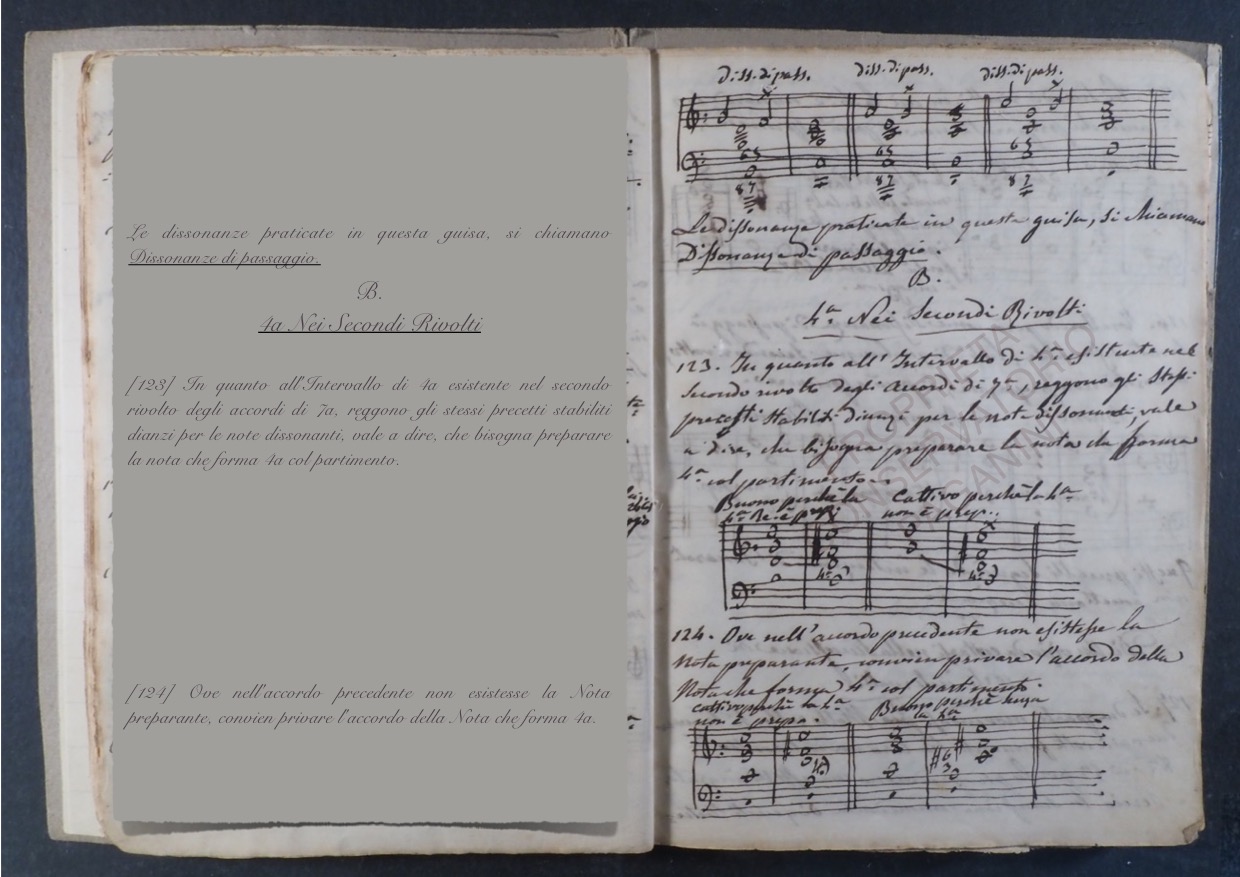 Le dissonanze praticate in questa guisa, si chiamano
Dissonanze di passaggio.
B.
4a Nei Secondi Rivolti
[123] In quanto all'Intervallo di 4a esistente nel secondo
rivolto degli accordi di 7a, reggono gli stessi precetti stabiliti
dianzi per le note dissonanti, vale a dire, che bisogna preparare
la nota che forma 4a col partimento.
[124] Ove nell'accordo precedente non esistesse la Nota
preparante, convien privare l'accordo della Nota che forma 4a.
diss. di pass. diss. di pass. diss. di pass.
65 65 65
87 87 87
Le dissonanze praticate in questa guisa, si chiamano
Dissonanze di passaggio.
B.
4a Nei Secondi Rivolti
123. In quanto all'Intervallo di 4a esistente nel
secondo rivolto degli accordi di 7a, reggono gli stessi
precetti stabiliti dianzi per le note dissonanti, vale
a dire, che bisogna preparare la nota che forma
4a col partimento.
Buono perchè la Cattivo perchè la 4a
4a Re è prep. non è prep.
4a 4a
PROPRIETÀ
CONSERVATORIO
PAGANINI
124. Ove nell'accordo precedente non esistesse la
Nota preparante, convien privare l'accordo della
Nota che forma 4a col partimento.
cattivo perchè la 4a Buono perchè senza
non è prepa. la 4a